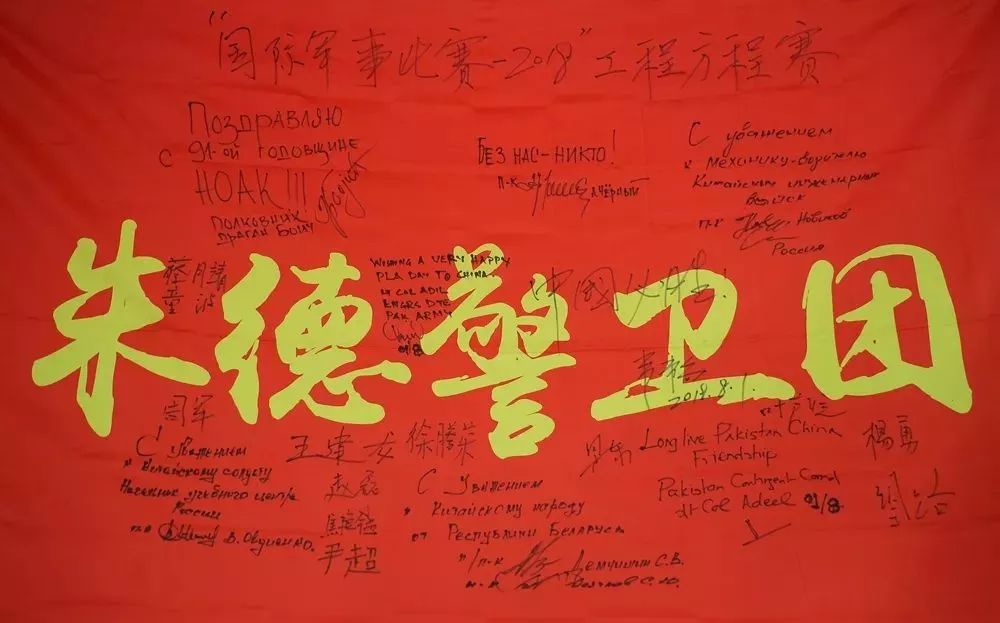 "国际军事比赛-2018"工程方程赛
ПОЗДРАВЛЯЮ
С 91-ОЙ ГОДОВЩИНЕ
НОАК !!!
ПОЛКОВНИК
ДРАГАН
БЕЗ НАС-НИКТО!
П-К
АЧЁРНЫЙ
С уважением
к Механику-водителю
Китайских инженерных
войск
п-к
Новиков
Россия
蔡 月 靖
童 波
WISHING A VERY HAPPY
PLA DAY TO CHINA.
LT COL ADIL
ENGRS DTE
PAK ARMY
01/8
中國必胜!
2018.8.1.
朱德警卫团
闫军
С уважением
к Китайскому солдату
Начальник учебного центра
России
п-к
王建龙
徐腾荣
赵磊
尹超
С Уважением
к Китайскому народу
от Республики Беларусь
п/п-к
Демчишин С.В.
Long live Pakistan China
Friendship
Pakistan Contingent Comd
Lt Col Adeel 01/8
楊勇